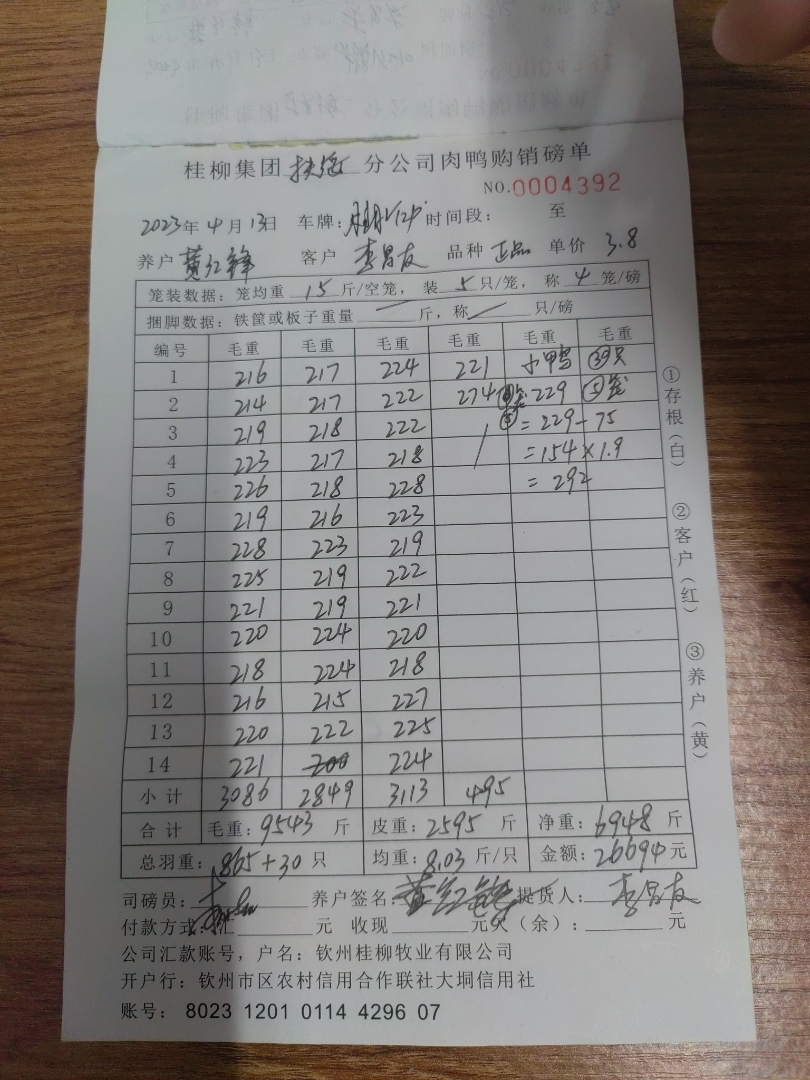 桂柳集团 扶绥 分公司肉鸭购销磅单
NO.0004392
2023年4月13日 车牌: 时间段: 至
养户 黄红锋 客户 李昌友 品种 正品 单价 3.8
笼装数据: 笼均重 15 斤/空笼, 装 5 只/笼, 称 4 笼/磅
捆脚数据: 铁筐或板子重量 斤, 称 只/磅
编号 毛重 毛重 毛重 毛重 毛重 毛重
1 216 217 224 221 小鸭 30只
2 214 217 222 274 229 ⑤笼
3 219 218 222 =229-75
4 223 217 218 =154×1.9
5 226 218 228 =292
6 219 216 223
7 228 223 219
8 225 219 222
9 221 219 221
10 220 224 220
11 218 224 218
12 216 215 227
13 220 222 225
14 221 200 224
小计 3086 2849 3113 495
合计 毛重: 9543 斤 皮重: 2595 斤 净重: 6948 斤
总羽重: 865+30 只 均重: 8.03 斤/只 金额: 26694元
司磅员: 养户签名: 黄红锋 提货人: 李昌友
付款方式: 汇 元 收现 元欠(余): 元
公司汇款账号, 户名: 钦州桂柳牧业有限公司
开户行: 钦州市区农村信用合作联社大垌信用社
账号: 8023 1201 0114 4296 07
①存根(白)
②客户(红)
③养户(黄)